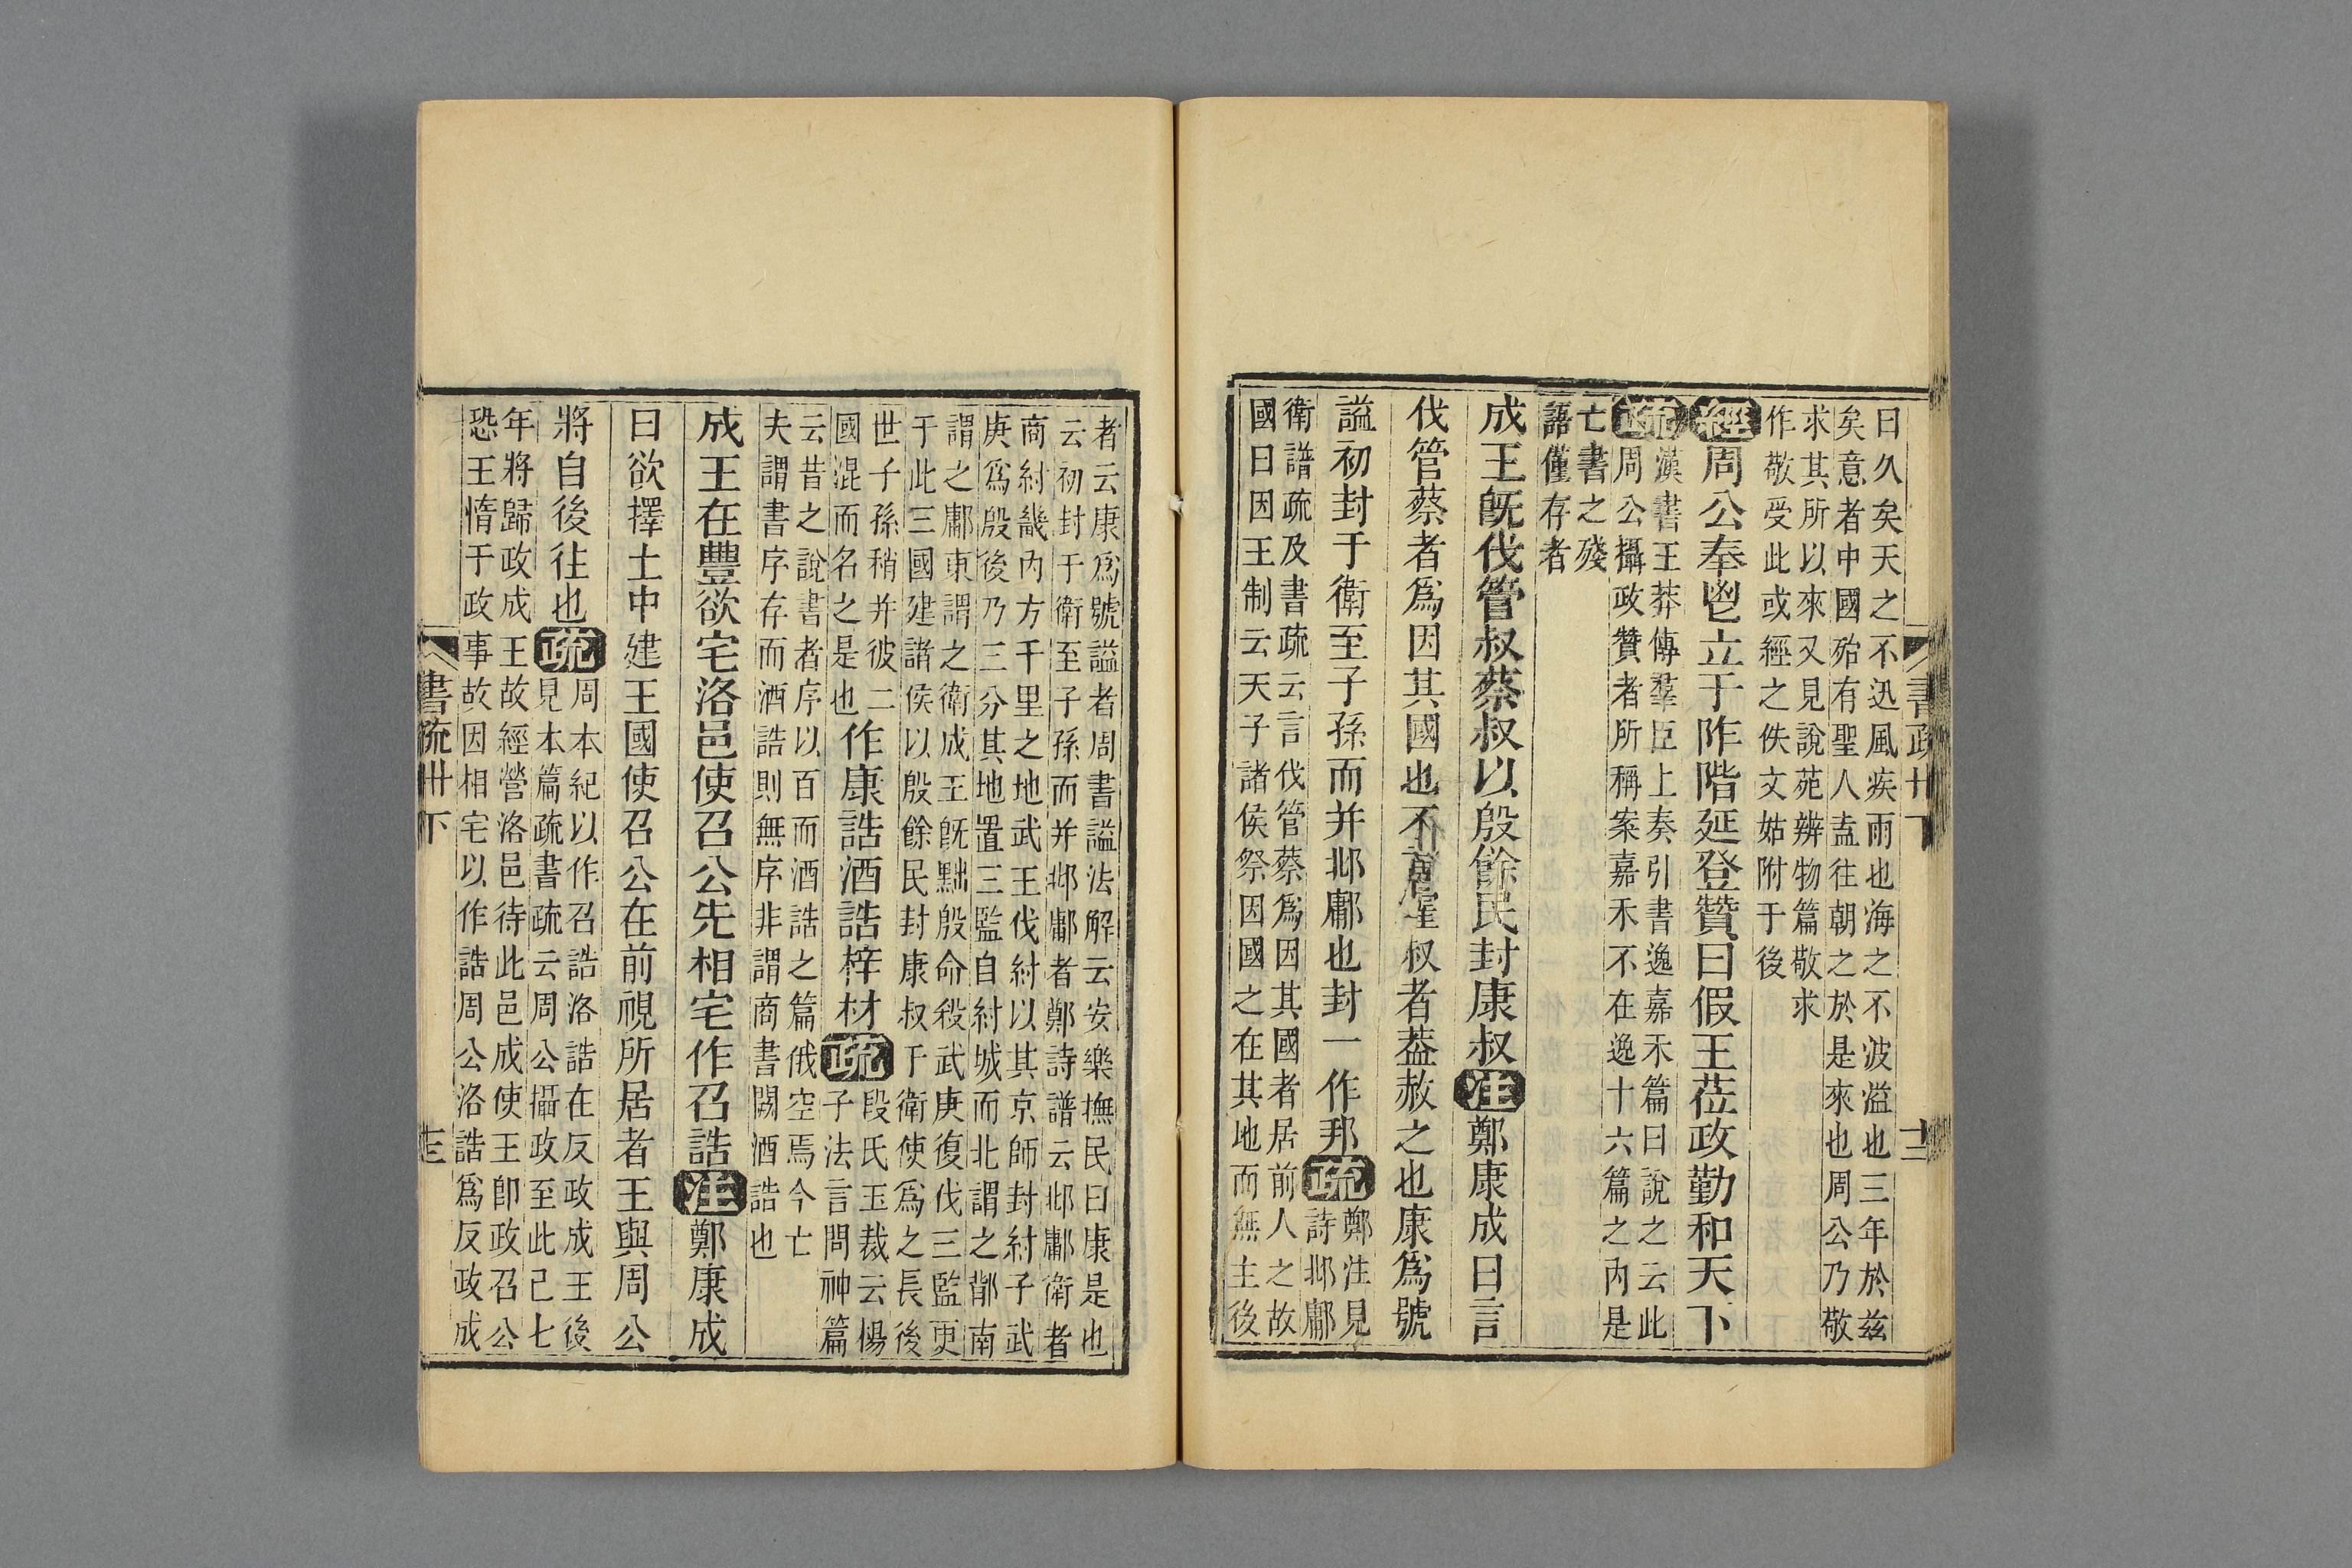 曰久矣天之不迅風疾雨也海之不波溢也三年於茲
矣意者中國殆有聖人盍往朝之於是來也周公乃敬
求其所以來又見說苑辨物篇敬求
作敬受此或經之佚文姑附于後
經周公奉鬯立于阼階延登贊曰假王莅政勤和天下
疏漢書王莽傳羣臣上奏引書逸嘉禾篇曰說之云此
周公攝政贊者所稱案嘉禾不在逸十六篇之內是
亡書之殘
語僅存者
成王旣伐管叔蔡叔以殷餘民封康叔注鄭康成曰言
伐管蔡者爲因其國也不言霍叔者葢赦之也康爲號
諡初封于衛至子孫而并邶鄘也封一作邦疏
鄭注見
詩邶鄘
衛譜疏及書疏云言伐管蔡爲因其國者居前人之故
國曰因王制云天子諸侯祭因國之在其地而無主後
書疏卅下
十二
者云康爲號諡者周書諡法解云安樂撫民曰康是也
云初封于衛至子孫而并邶鄘者鄭詩譜云邶鄘衛者
商紂畿內方千里之地武王伐紂以其京師封紂子武
庚爲殷後乃三分其地置三監自紂城而北謂之鄁南
謂之鄘東謂之衛成王旣黜殷命殺武庚復伐三監更
于此三國建諸侯以殷餘民封康叔于衛使爲之長後
世子孫稍并彼二
國混而名之是也
作康誥酒誥梓材疏
段氏玉裁云楊
子法言問神篇
云昔之說書者序以百而酒誥之篇俄空焉今亡
夫謂書序存而酒誥則無序非謂商書闕酒誥也
成王在豐欲宅洛邑使召公先相宅作召誥注鄭康成
曰欲擇土中建王國使召公在前視所居者王與周公
將自後往也疏
周本紀以作召誥洛誥在反政成王後
見本篇疏書疏云周公攝政至此已七
年將歸政成王故經營洛邑待此邑成使王卽政召公
恐王惰于政事故因相宅以作誥周公洛誥爲反政成
書疏卅下
十三